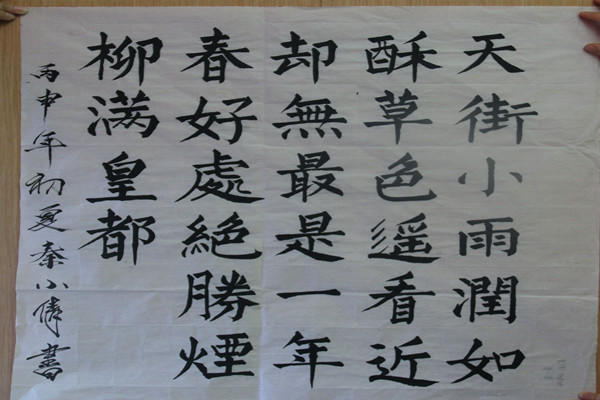 天街小雨潤如
酥草色遥看近
却無最是一年
春好處絕勝煙
柳满皇都
丙申年初夏秦小偉書